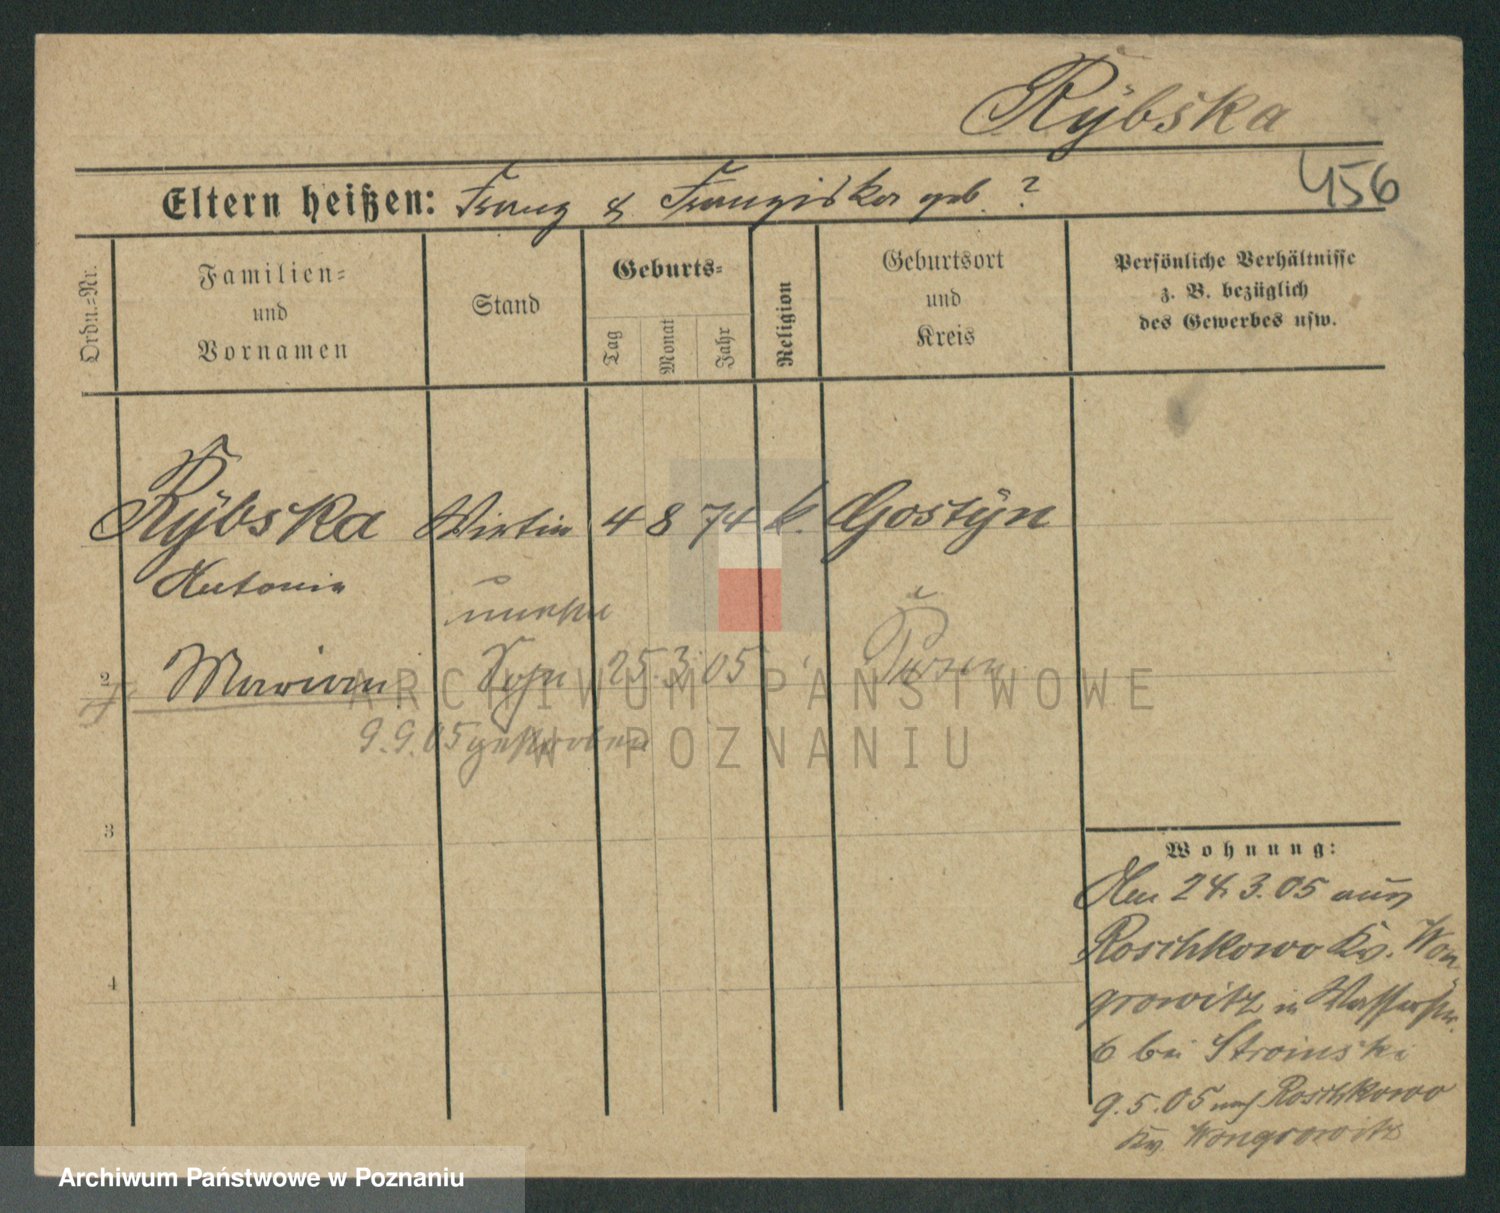 Rÿbska
456
Eltern heißen: Franz & Franziska geb. ?
Ordn.=Nr.
Familien=
und
Vornamen
Stand
Geburts=
Tag
Monat
Jahr
Religion
Geburtsort
und
Kreis
Persönliche Verhältnisse
z. B. bezüglich
des Gewerbes usw.
Rÿbska Wirtin 4 8 74 k. Gostÿn
Antonie
unehe
2 Marian Sohn 25. 3. 05 Posen
9.9.05 gestorben
3
4
Wohnung:
Den 24.3.05 aus
Roschkowo Kr. Won
growitz in Wasserstr.
6 bei Stroinski
9.5.05 nach Roschkowo
Kr. Wongrowitz
ARCHIWUM PAŃSTWOWE
W POZNANIU
Archiwum Państwowe w Poznaniu